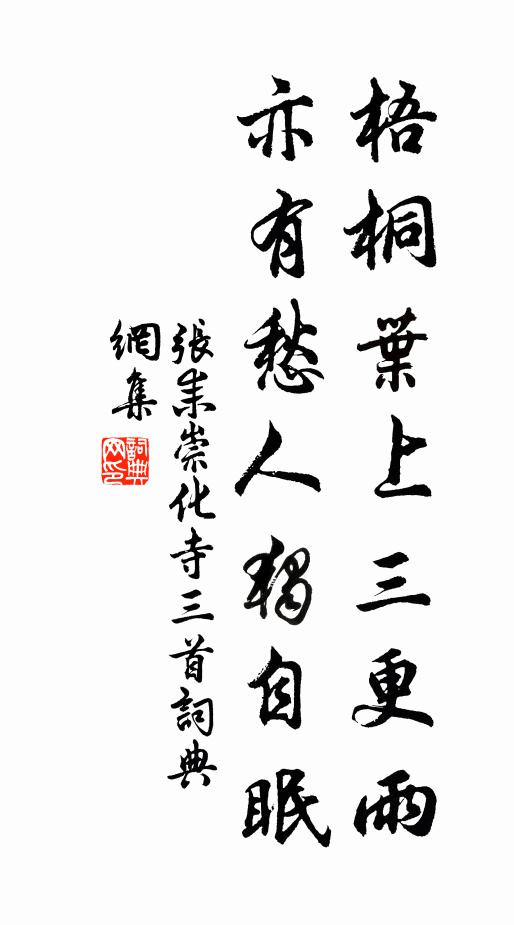 梧桐葉上三更雨
亦有愁人獨自眠
張耒崇化寺三首詞典
網集
詞典
网印